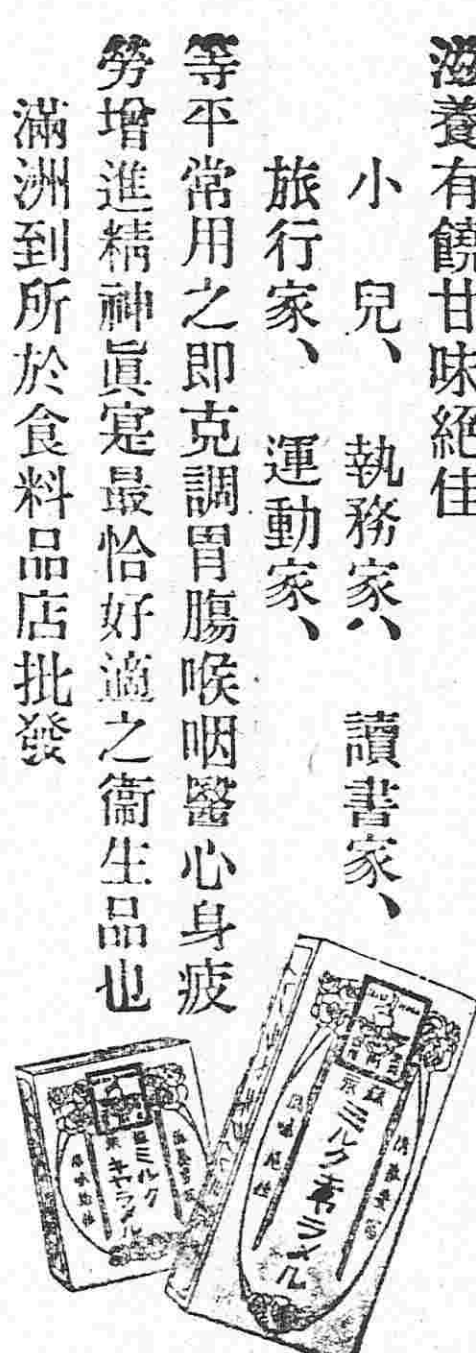 滋養有饒甘味絕佳
小兒、執務家、讀書家、
旅行家、運動家、
等平常用之即克調胃腸喉咽醫心身疲
勞增進精神眞寔最恰好適之衞生品也
滿洲到所於食料品店批發
ミルクキャラメル
滋養豊富
風味絶佳
ミルク
キャラメル